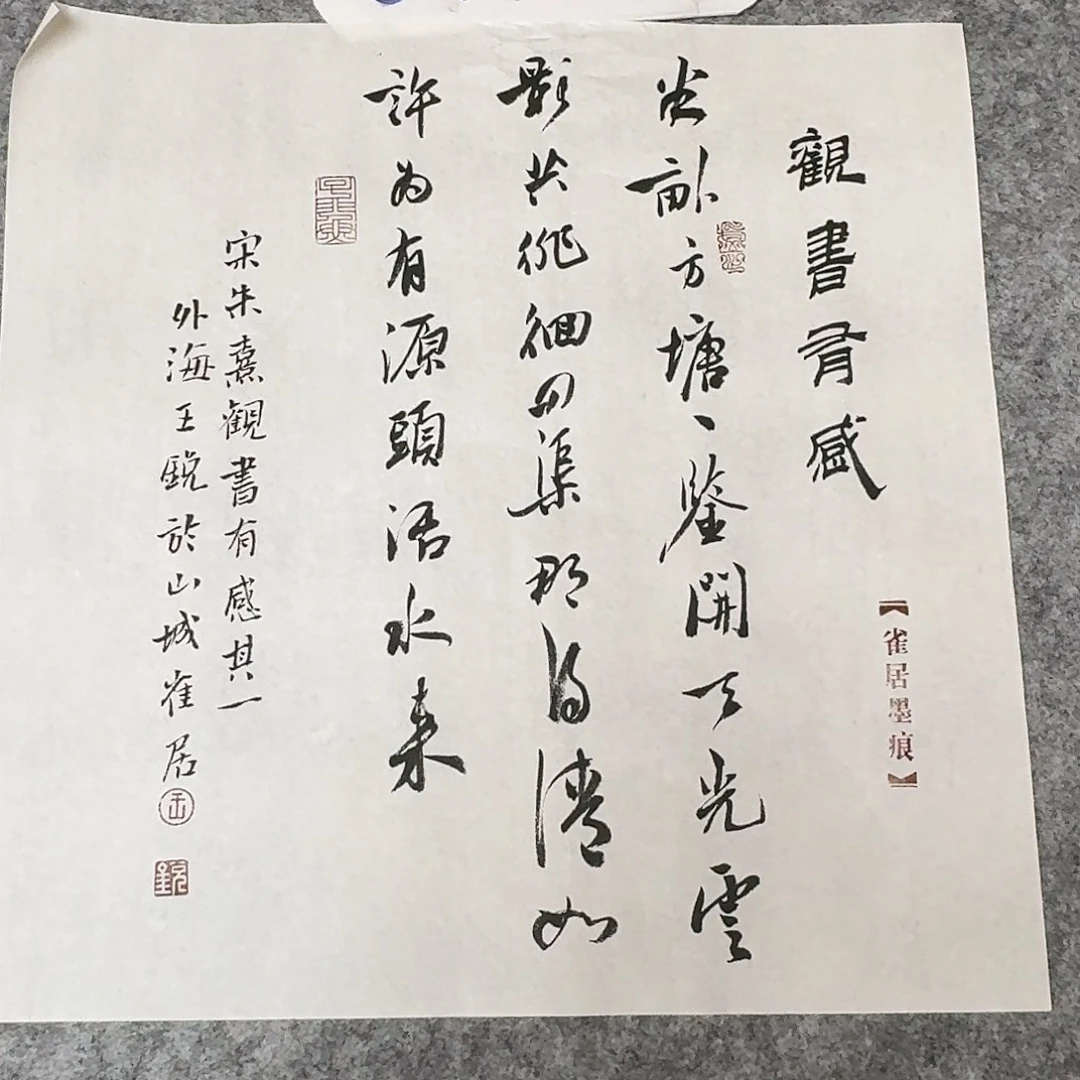 【雀居墨痕】
觀書有感
半畝方塘一鑒開天光雲
影共徘徊問渠那得清如
許为有源頭活水来
宋朱熹觀書有感其一
外海王銳於山城雀居
王
銳